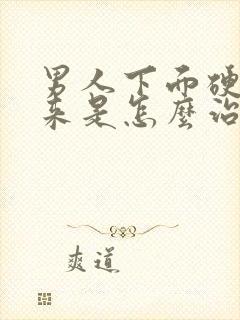 男人下面硬
来是怎麼治
爽道